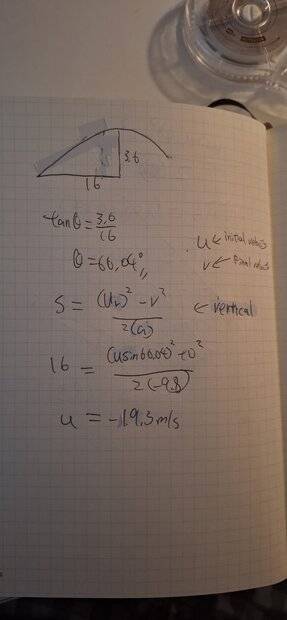 3.6
16
tanθ = 3.6/16
θ = 60.04°,,
u ← initial velocity
v ← final velocity
S = (Uv)² - v² / 2(a) ← vertical
16 = (usin60.04)² + 0² / 2(-9.8)
u = -19.3 m/s